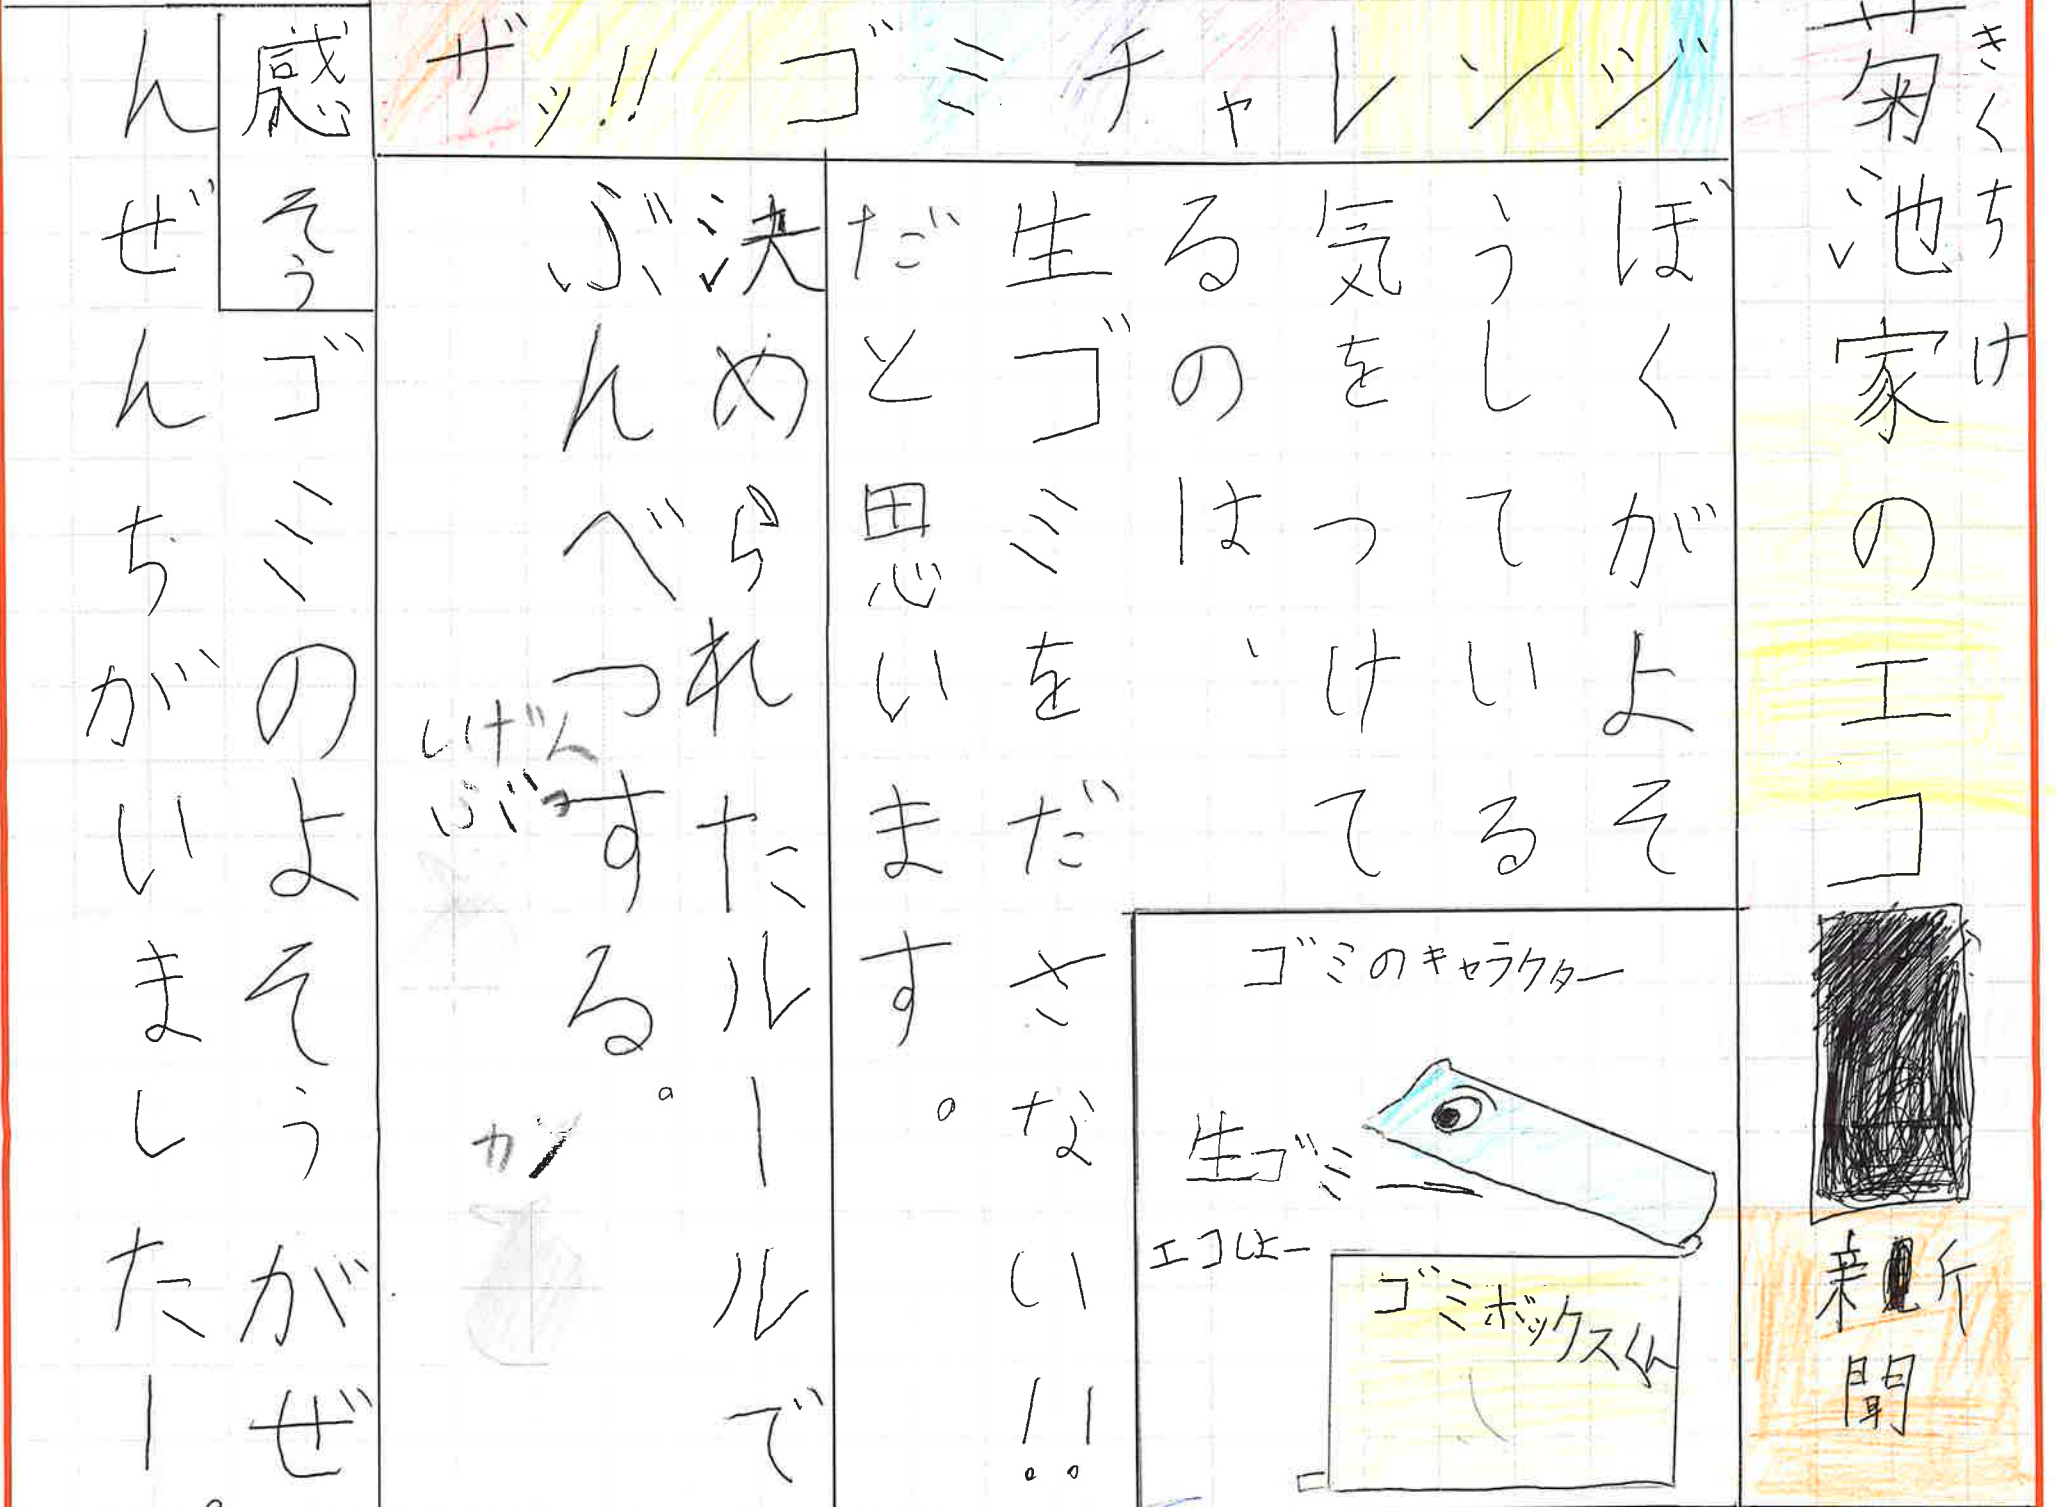 きくちけ
菊池家のエコ
新聞
ザッ!!ゴミチャレンジ
ぼくがよそ
うしている
気をつけて
るのは、
生ゴミをださない!!
だと思います。
ゴミのキャラクター
生ゴミ
エコしよー
ゴミボックスくん
決められたルールルで
ぶんべつする。
いげん
ぶつ
カン
感そう
ゴミのよそうがぜ
んぜんちがいましたー。